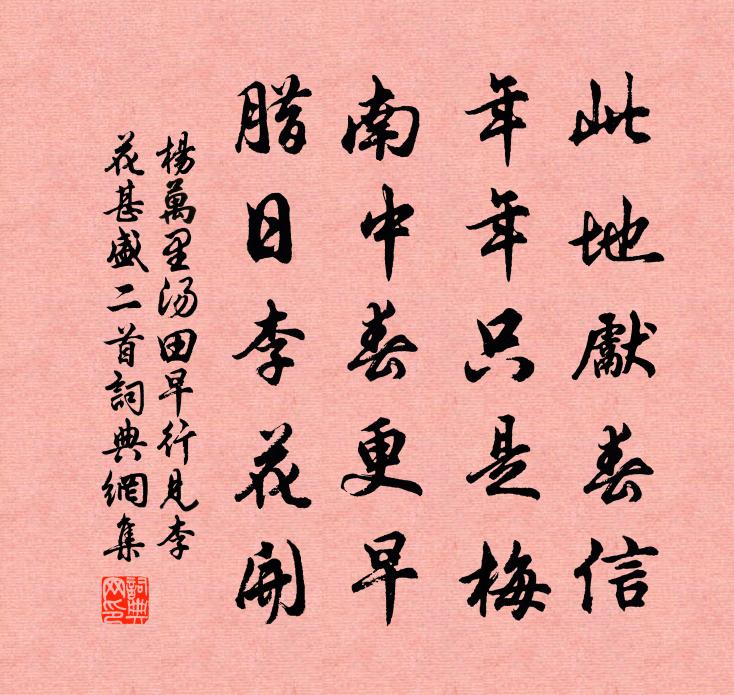 此地獻春信
年年只是梅
南中春更早
腊日李花開
楊萬里湯田早行見李
花甚盛二首詞典網集
詞典
网印